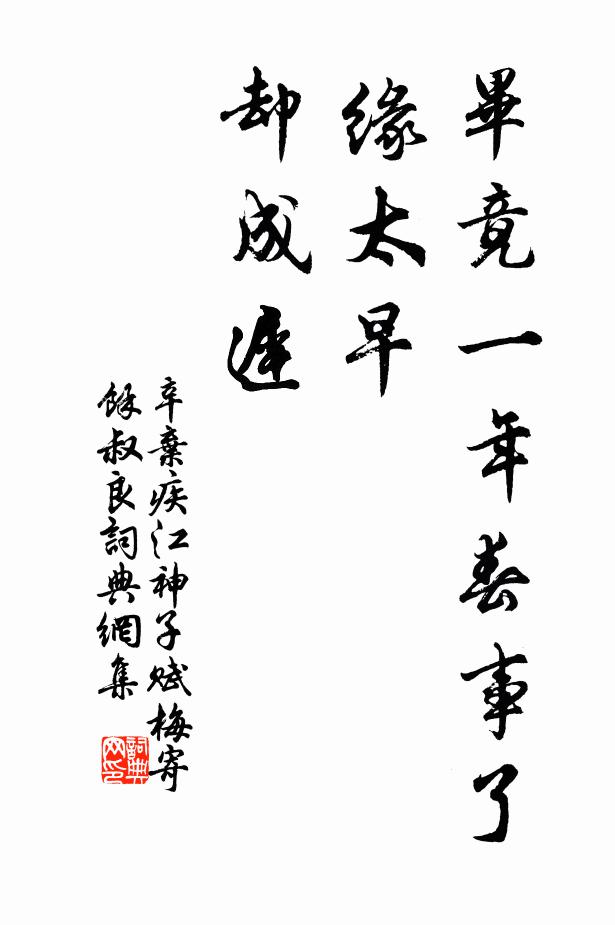 畢竟一年春事了
緣太早
却成遲
辛棄疾江神子賦梅寄
餘叔良詞典網集
詞典網印